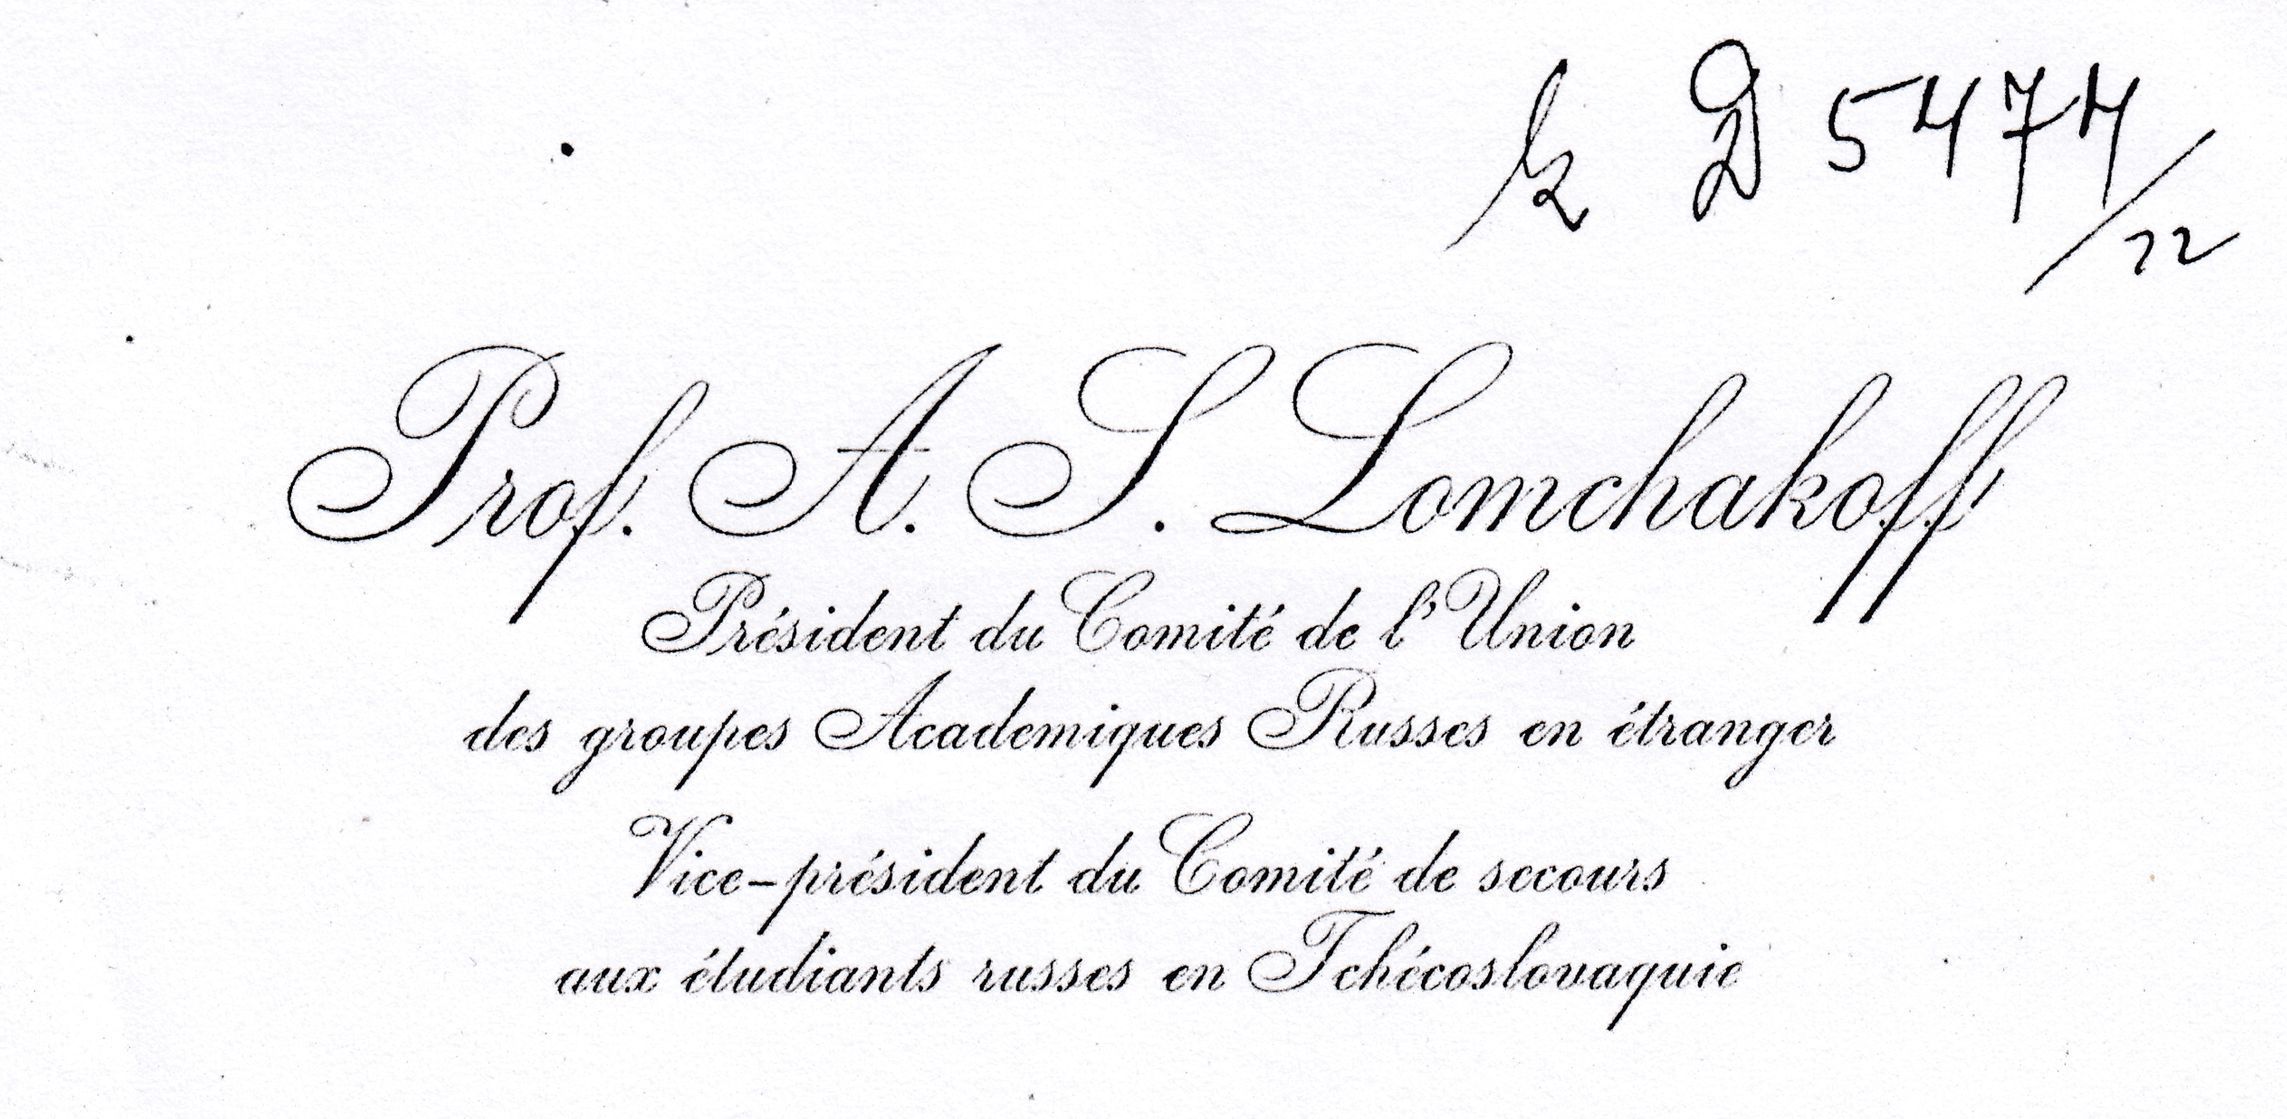 k D 5474/22
Prof. A. S. Lomchakoff
Président du Comité de l'Union
des groupes Academiques Russes en étranger
Vice-président du Comité de secours
aux étudiants russes en Tchécoslovaquie